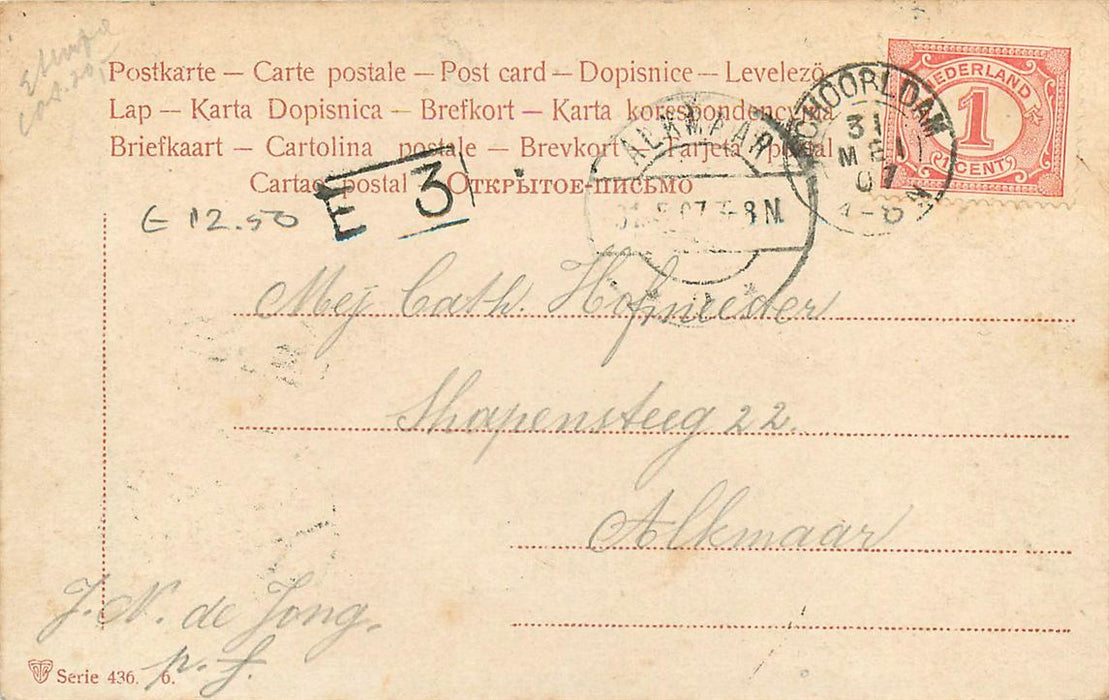 Postkarte – Carte postale – Post card – Dopisnice – Levelező
Lap – Karta Dopisnica – Brefkort – Karta korespondencyjna
Briefkaart – Cartolina postale – Brevkort – Tarjeta postal
Cartao postal – Открытое-письмо
NEDERLAND
1
1 CENT
SCHOORLDAM
31
MEI
07
4-8 N
ALKMAAR
31.5.07 5-8N
E 3
€ 12.50
Mej Cath. Hofmeester
Shapensteeg 22.
Alkmaar
J. N. de Jong.
p. f.
Serie 436. 6.